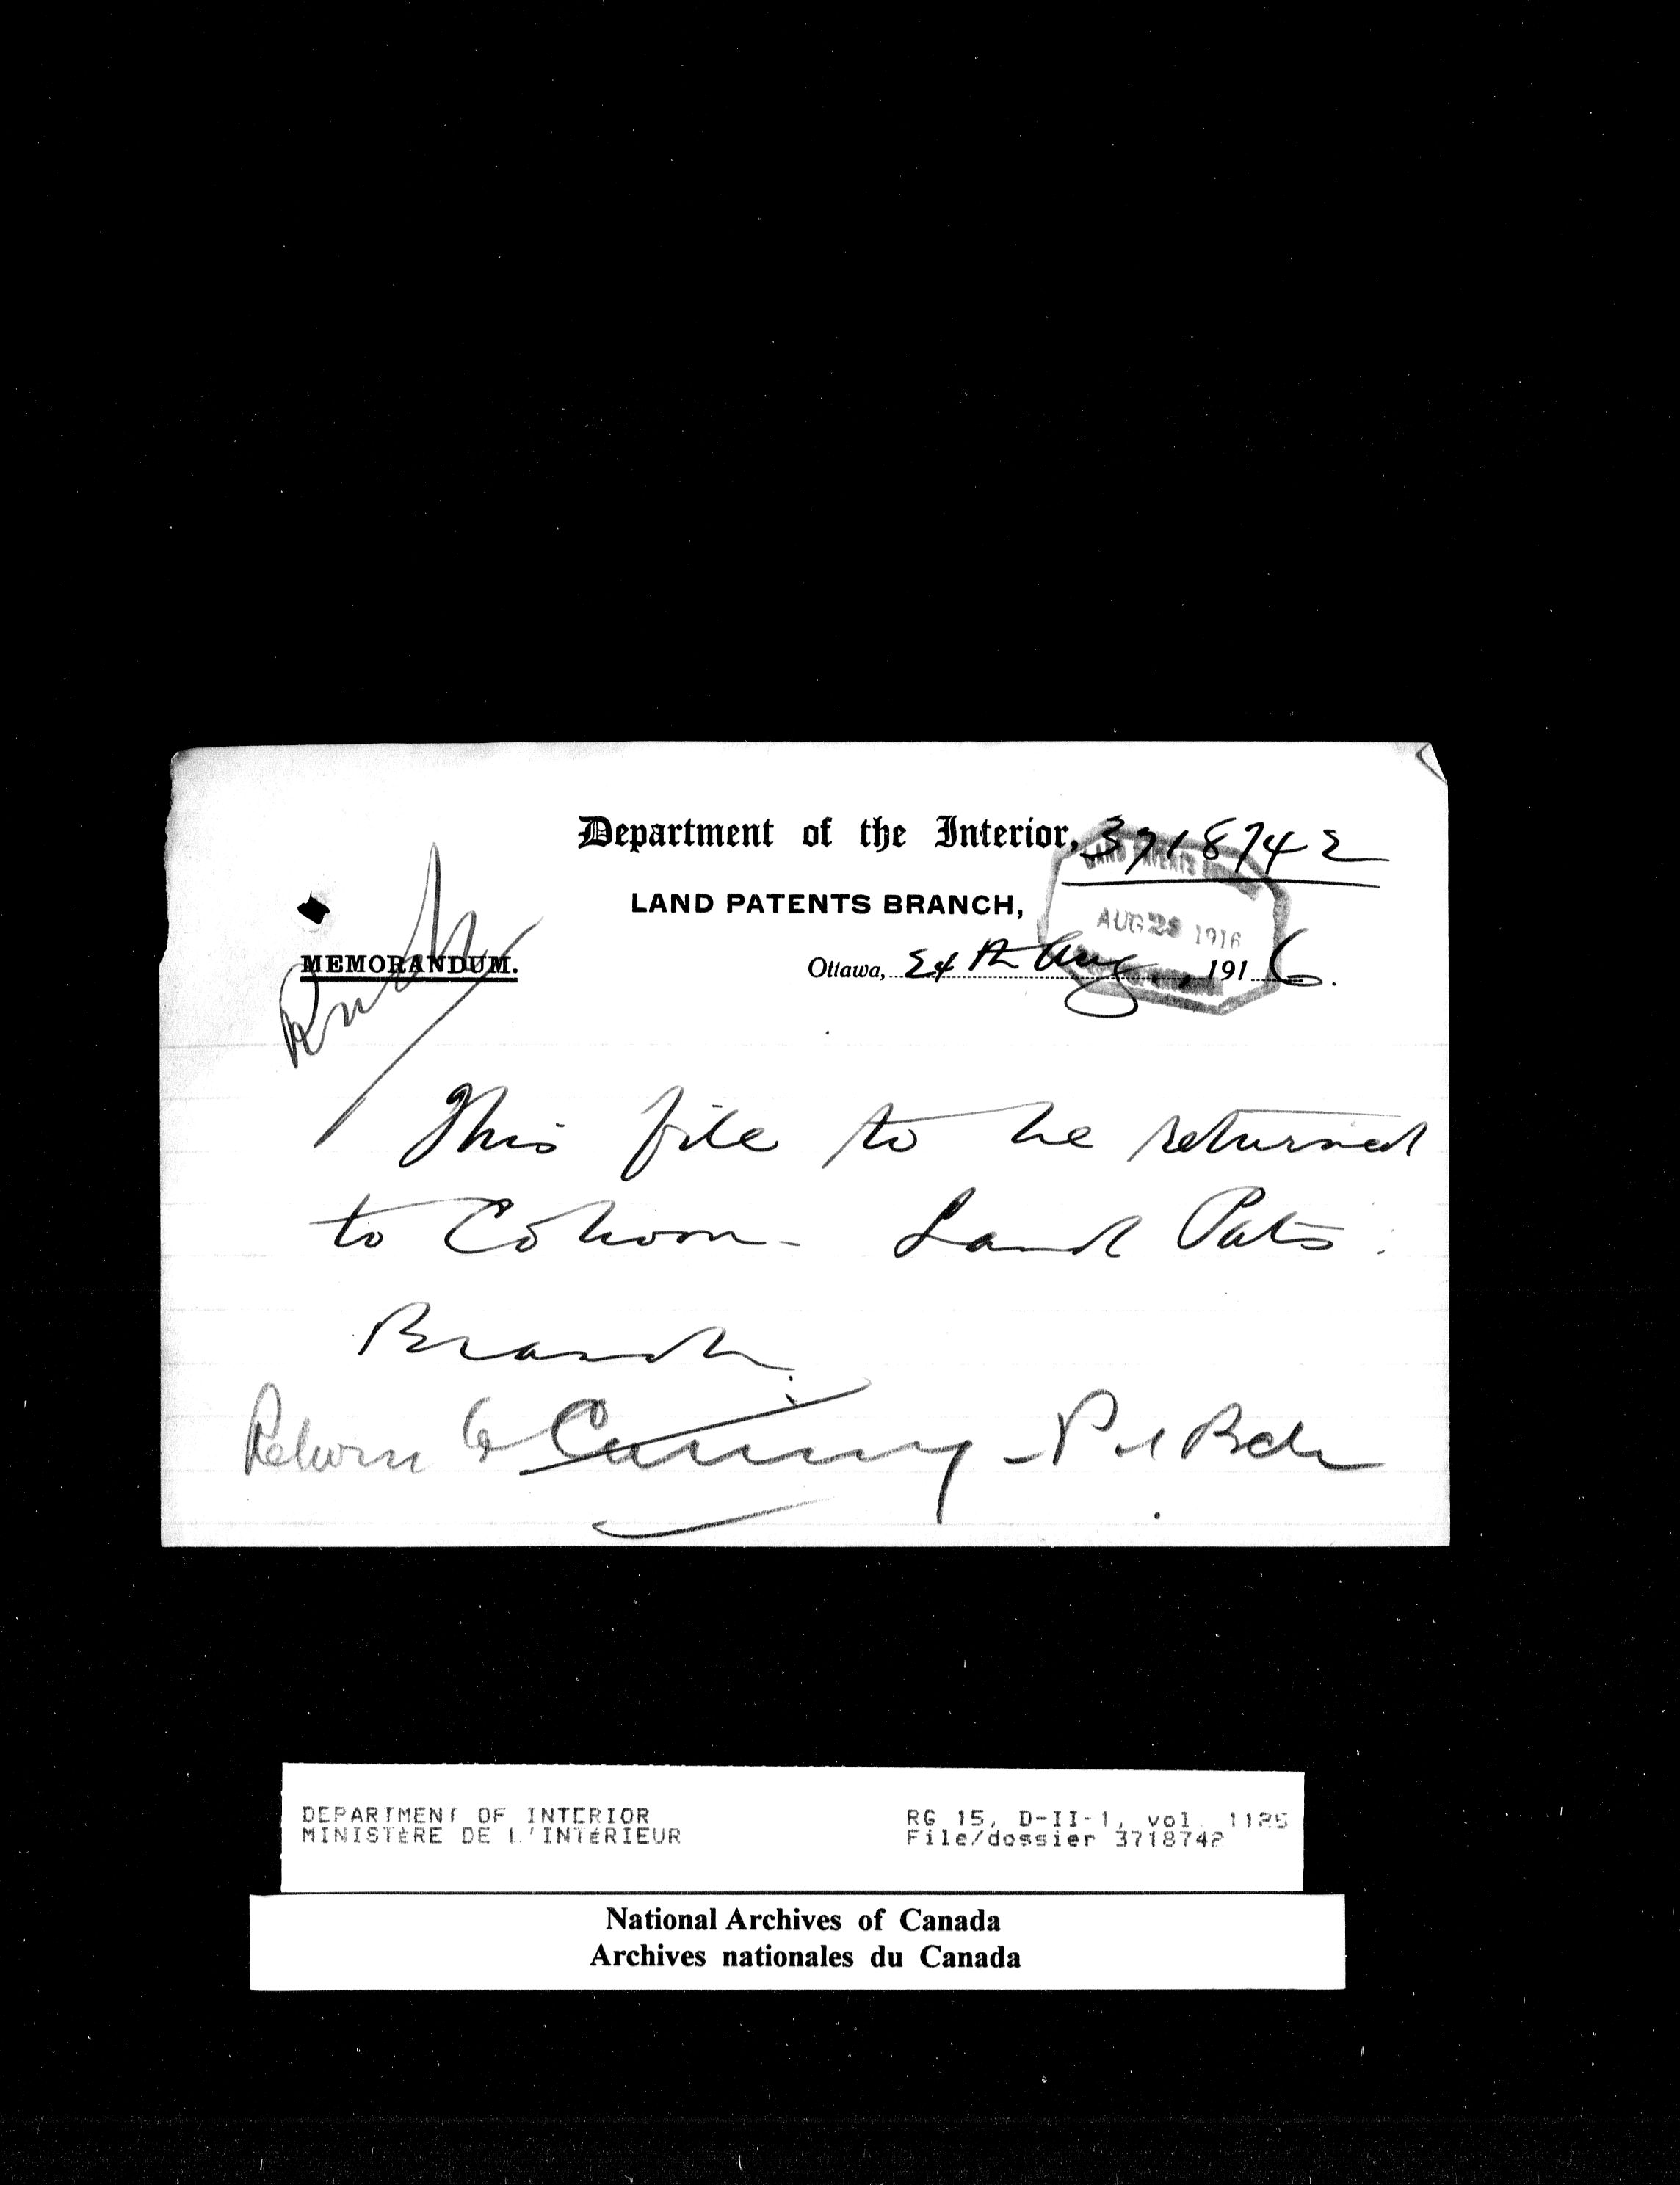 Department of the Interior, 3718742
LAND PATENTS BRANCH,
LAND PATENTS
AUG 28 1916
MEMORANDUM.
Ottawa, 24th Aug., 1916.
This file to be returned
to Cohoon - Land Pats.
Branch.
Return to Cumming - Bch
DEPARTMENT OF INTERIOR
MINISTÈRE DE L'INTÉRIEUR
RG 15, D-II-1, vol. 1125
File/dossier 3718742
National Archives of Canada
Archives nationales du Canada